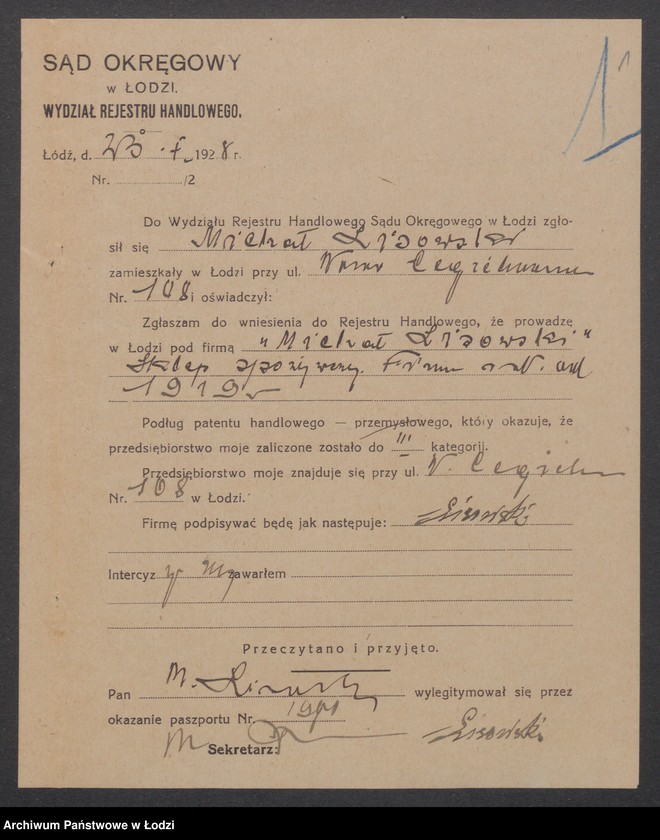 1
SĄD OKRĘGOWY
W ŁODZI.
WYDZIAŁ REJESTRU HANDLOWEGO.
Łódź, d. 23 . I. 1928 r.
Nr. /2
Do Wydziału Rejestru Handlowego Sądu Okręgowego w Łodzi zgło-
sił się Michał Lisowski
zamieszkały w Łodzi przy ul. Nowo Cegielniana
Nr. 108 i oświadczył:
Zgłaszam do wniesienia do Rejestru Handlowego, że prowadzę
w Łodzi pod firmą „Michał Lisowski"
Sklep spożywczy. Firma od
1919 r
Podług patentu handlowego — przemysłowego, który okazuje, że
przedsiębiorstwo moje zaliczone zostało do III kategorji.
Przedsiębiorstwo moje znajduje się przy ul. N. Cegieln
Nr. 108 w Łodzi.
Firmę podpisywać będę jak następuje: Lisowski
Intercyzy nie zawarłem
Przeczytano i przyjęto.
Pan M. Lisowski wylegitymował się przez
okazanie paszportu Nr.
Lisowski
Sekretarz:
Archiwum Państwowe w Łodzi